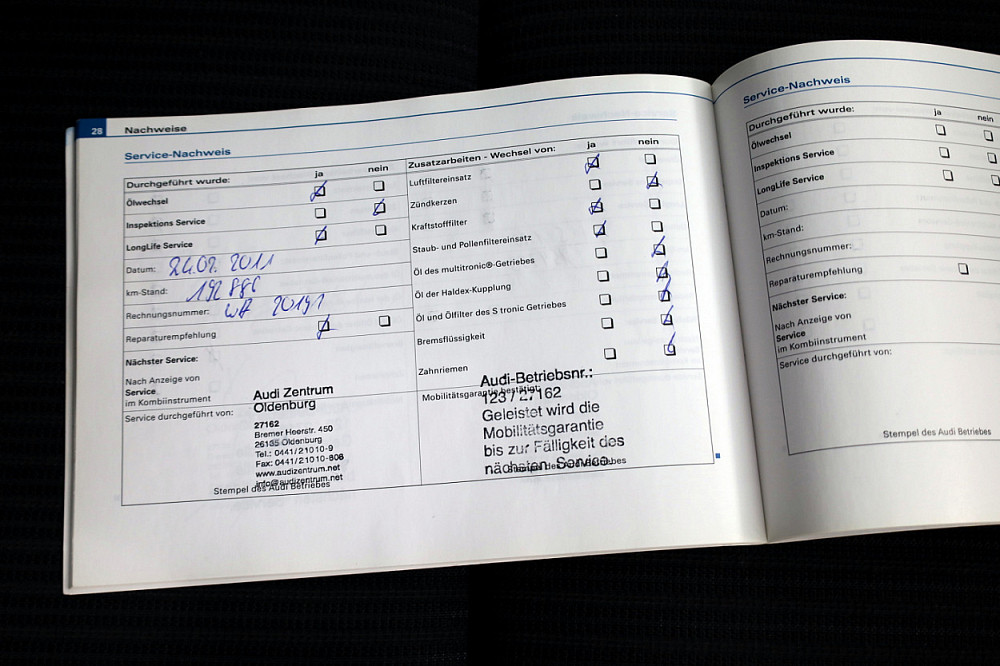 28 Nachweise
Service-Nachweis
Durchgeführt wurde: ja nein
Ölwechsel
Inspektions Service
LongLife Service
Datum:
km-Stand:
Rechnungsnummer:
Reparaturempfehlung
Nächster Service:
Nach Anzeige von
Service
im Kombiinstrument
Service durchgeführt von:
Audi Zentrum
Oldenburg
27162
Bremer Heerstr. 450
26135 Oldenburg
Tel.: 0441/21010-9
Fax: 0441/21010-808
www.audizentrum.net
info@audizentrum.net
Stempel des Audi Betriebes
Zusatzarbeiten - Wechsel von: ja nein
Luftfiltereinsatz
Zündkerzen
Kraftstofffilter
Staub- und Pollenfiltereinsatz
Öl des multitronic®-Getriebes
Öl der Haldex-Kupplung
Öl und Ölfilter des S tronic Getriebes
Bremsflüssigkeit
Zahnriemen
Mobilitätsgarantie bestätigt:
Audi-Betriebsnr.:
123 / 27162
Geleistet wird die
Mobilitätsgarantie
bis zur Fälligkeit des
nächsten Service.
Stempel des Audi Betriebes
Service-Nachweis
Durchgeführt wurde: ja nein
Ölwechsel
Inspektions Service
LongLife Service
Datum:
km-Stand:
Rechnungsnummer:
Reparaturempfehlung
Nächster Service:
Nach Anzeige von
Service
im Kombiinstrument
Service durchgeführt von:
Stempel des Audi Betriebes